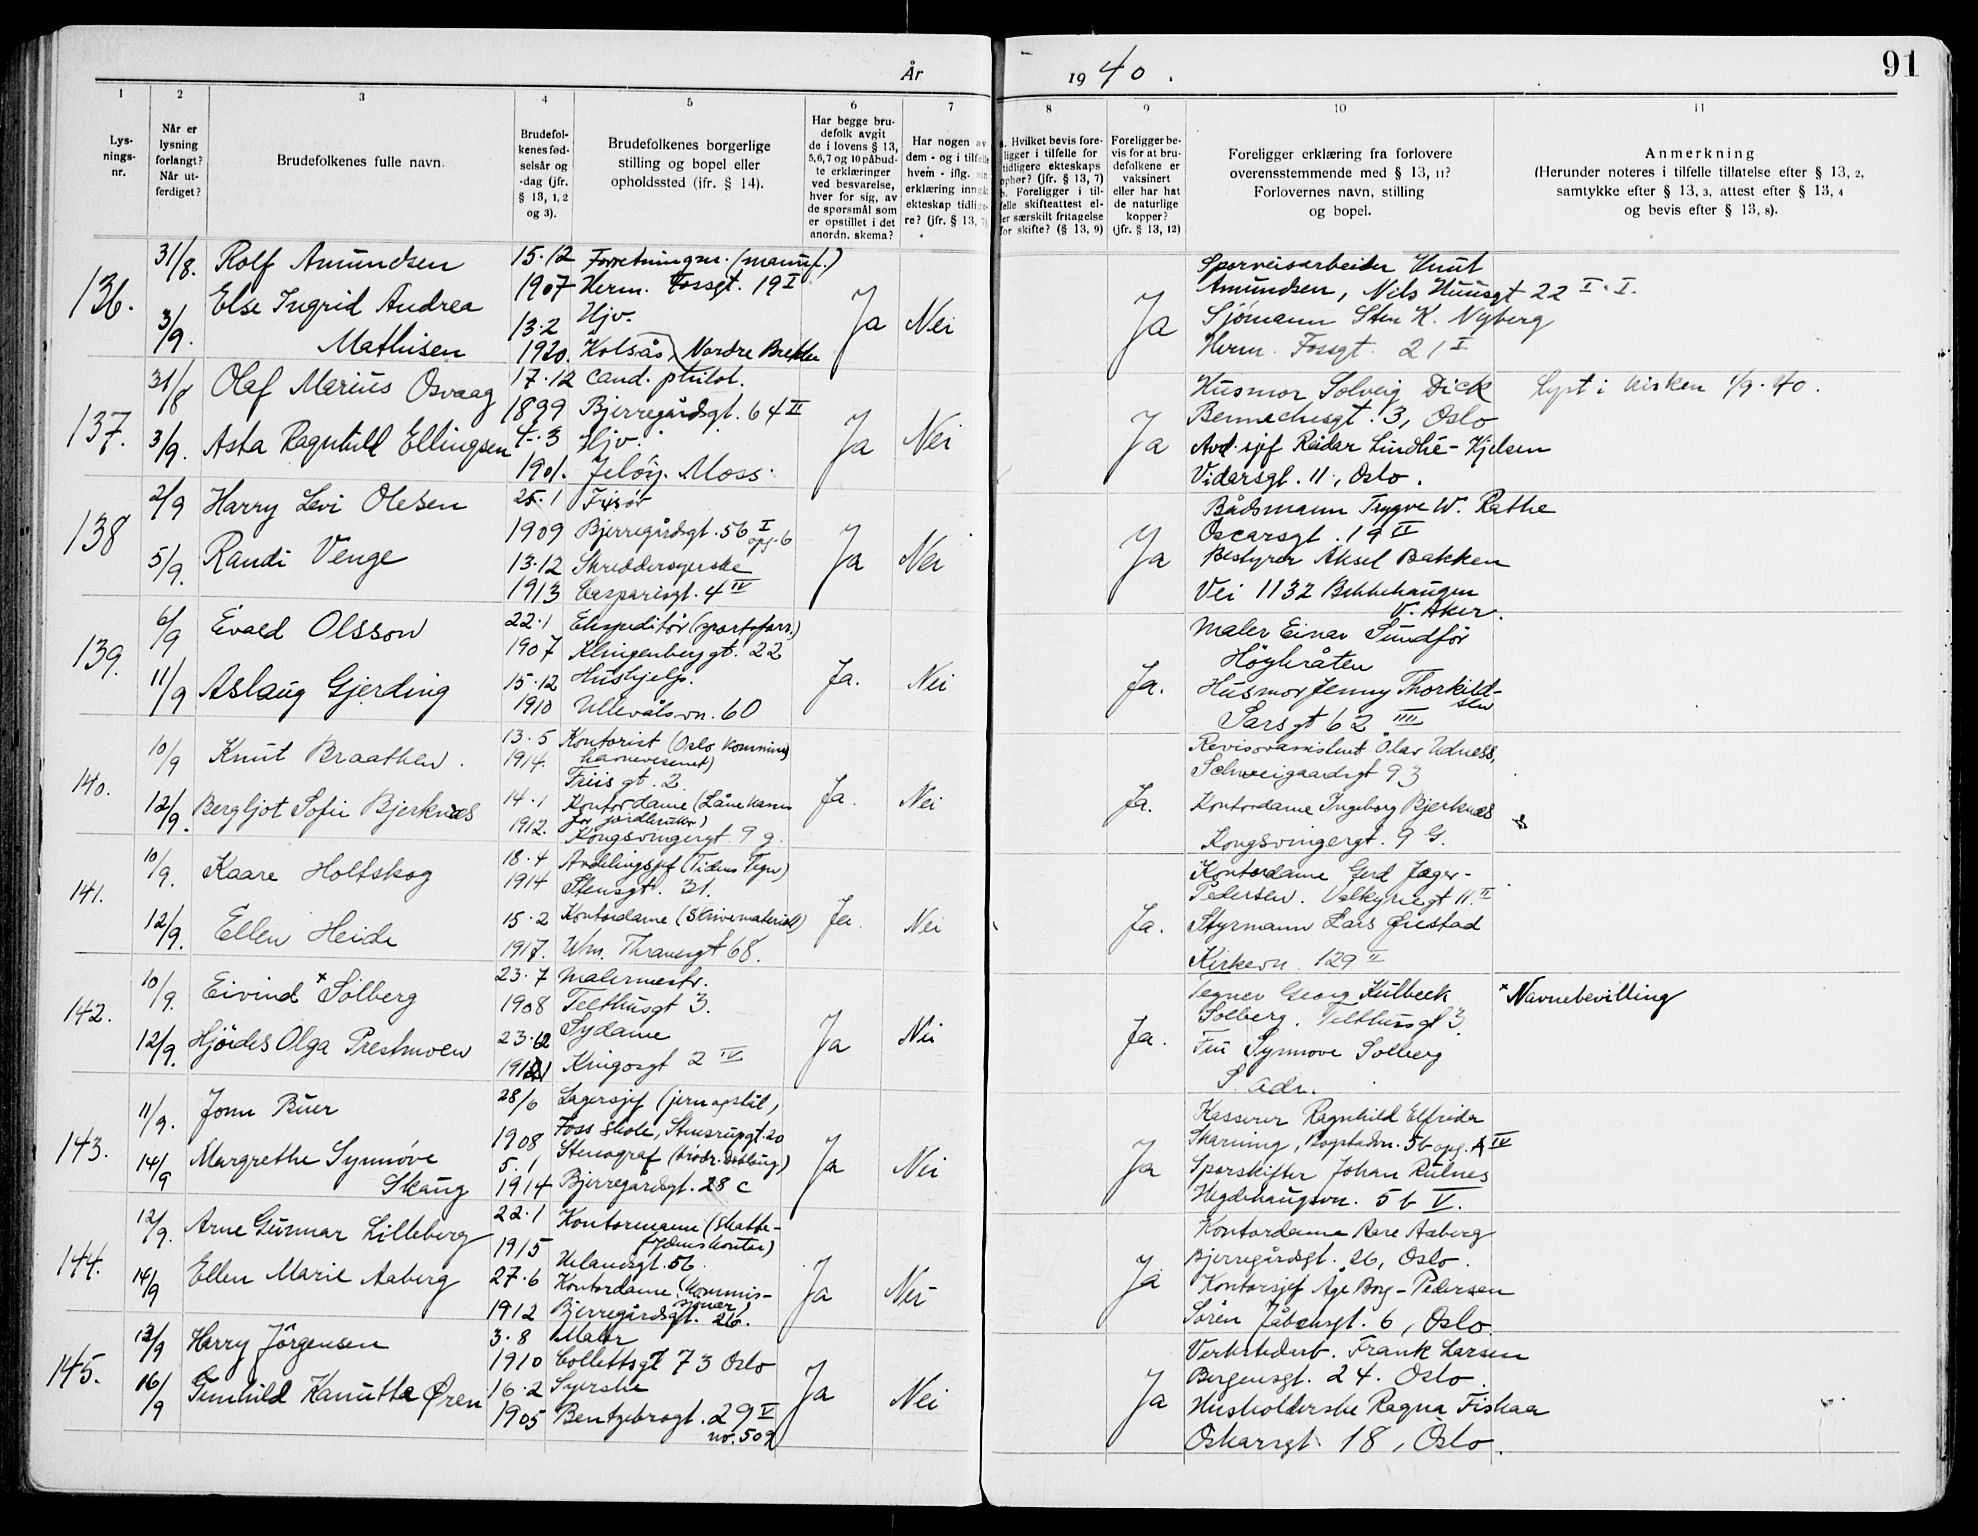 År 1940.
91
1 2 3 4 5 6 7 8 9 10 11
Lysningsnr.
Når er lysning forlangt? Når utferdiget?
Brudefolkenes fulle navn.
Brudefolkenes fødselsår og -dag (jfr. § 13, 1, 2 og 3).
Brudefolkenes borgerlige stilling og bopel eller opholdssted (ifr. § 14).
Har begge brudefolk avgit de i lovens § 13, 5,6,7 og 10 påbudte erklæringer ved besvarelse, hver for sig, av de spørsmål som er opstillet i det anordn. skema?
Har nogen av dem - og i tilfelle hvem - iflg. sin erklæring inngått ekteskap tidligere? (jfr. § 13, 7)
a. Hvilket bevis foreligger i tilfelle for tidligere ekteskaps ophør? (jfr. § 13, 7)
b. Foreligger i tilfelle skifteattest eller særskilt fritagelse for skifte? (§ 13, 9)
Foreligger bevis for at brudefolkene er vaksinert eller har hat de naturlige kopper? (jfr. § 13, 12)
Foreligger erklæring fra forlovere overensstemmende med § 13, 11? Forlovernes navn, stilling og bopel.
Anmerkning
(Herunder noteres i tilfelle tillatelse efter § 13, 2, samtykke efter § 13, 3, attest efter § 13, 4 og bevis efter § 13, 8).
136.
31/8.
3/9.
Rolf Amundsen
Else Ingrid Andrea
Mathisen
15.12
1907
13.2
1920.
Forretningsm. (manuf.)
Herm. Fossgt. 19 I
Hjv.
Kolsås, Nordre Brekke
Ja
Nei
Ja
Sporveisarbeider Knut
Amundsen, Nils Huusgt 22 I. I.
Sjömann Sten K. Nyberg
Herm. Fossgt. 21 I
137.
31/8
3/9.
Olaf Marius Osvaag
Asta Ragnhild Ellingsen
17.12
1899
4.3
1901.
Cand. philol.
Bjerregårdsgt. 64 II
Hjv.
Jelöy. Moss.
Ja
Nei
Ja
Husmor Solveig Dick
Bennechesgt. 3, Oslo
Avd. sjef Reidar Lindhé-Kjelsen
Vidarsgt. 11, Oslo.
Lyst i kirken 1/9. 40.
138
2/9
5/9.
Harry Levi Olesen
Randi Venge
25.1
1909
13.12
1913
Frisör
Bjerregårdsgt. 56 I
opg. 6
Skreddersyerske
Casparisgt. 4 IV
Ja
Nei
Ja
Bådsmann Trygve W. Rathe
Oscarsgt. 19 II
Bestyrer Aksel Bakken
Vei 1132 Bekkehaugen
V. Aker.
139.
6/9
11/9
Evald Olsson
Aslaug Gjerding
22.1
1907
15.12
1910
Ekspeditör (sportsforr.)
Klingenberggt. 22
Hushjelp.
Ullevålsvn. 60
Ja.
Nei
Ja.
Maler Einar Sundför
Höybråten
Husmor Jenny Thorkildsen
Sarsgt 62 IIII
140.
10/9
12/9.
Knut Braathen.
Bergljot Sofie Bjerknæs
13.5
1914.
14.1
1912.
Kontorist (Oslo kommune
havnevesenet)
Friisgt. 2.
Kontordame (Lånekassen
for jordbruker)
Kongsvingergt 9 g.
Ja.
Nei
Ja.
Revisorassistent Olav Udness,
Schweigaardsgt 93
Kontordame Ingeborg Bjerknæs
Kongsvingergt. 9 G.
141.
10/9.
12/9.
Kaare Holtskog
Ellen Heide
18.4
1914
15.2
1917.
Avdelingssjef (Tidens Tegn)
Stensgt. 31.
Kontordame (Skrivemateriell)
Wm. Thranesgt 68.
Ja.
Nei
Ja.
Kontordame Gerd Jæger-
Pedersen. Valkyriegt 11. II
Styrmann Lars Øiestad
Kirkevn 129 II
142.
10/9.
12/9.
Eivind x Solberg
Hjördis Olga Prestmoen
23.7
1908
23.
Malermestr.
Telthusgt 3.
Sydame
Kingosgt 2 IV
Ja
Nei
Ja.
Tegner Georg Kulbeck
Solberg. Telthusgt 3.
Fru Synnove Solberg
S. adr.
x Navnebevilling
143.
11/9.
14/9
John Buer
Margrethe Synnöve
Skaug
28/6
1908
5.1
1914
Lagersjef (jern og stål,
Foss skole, Stensrupgt. 20
Stenograf
Bjerregårdsgt. 28 c
Ja
Nei
Ja
Kasserer Ragnhild Elfrida
Skarning, Bogstadvn. 56 opg. A IV
Sporskifter Johan Rulnes
Hegdehaugsvn. 5b V.
144.
12/9.
14/9
Arne Gunnar Lilleberg
Ellen Marie Aaberg
22.1
1915
27.6
1912
Kontormann (skatte-
fogdens kontor)
Ulandsgt. 56.
Kontordame (Kommis-
sjonær)
Bjerregårdsgt. 26.
Ja
Nei
Ja
Kontordame Aase Aaberg
Bjerregårdsgt. 26, Oslo.
Kontorsjef Åge Borg-Pedersen
Sören Jåbæksgt. 6, Oslo.
145.
13/9
16/9
Harry Jörgensen
Gunhild Kanutta Øren
3.8
1910
16.2
1905
Maler
Collettsgt 73 Oslo
Syerske
Bentzebrogt. 29 V
no. 509
Ja
Nei
Ja
Verkstedarb. Frank Larsen
Bergensgt. 24. Oslo.
Husholderske Ragna Fiskaa
Oskarsgt 18, Oslo.